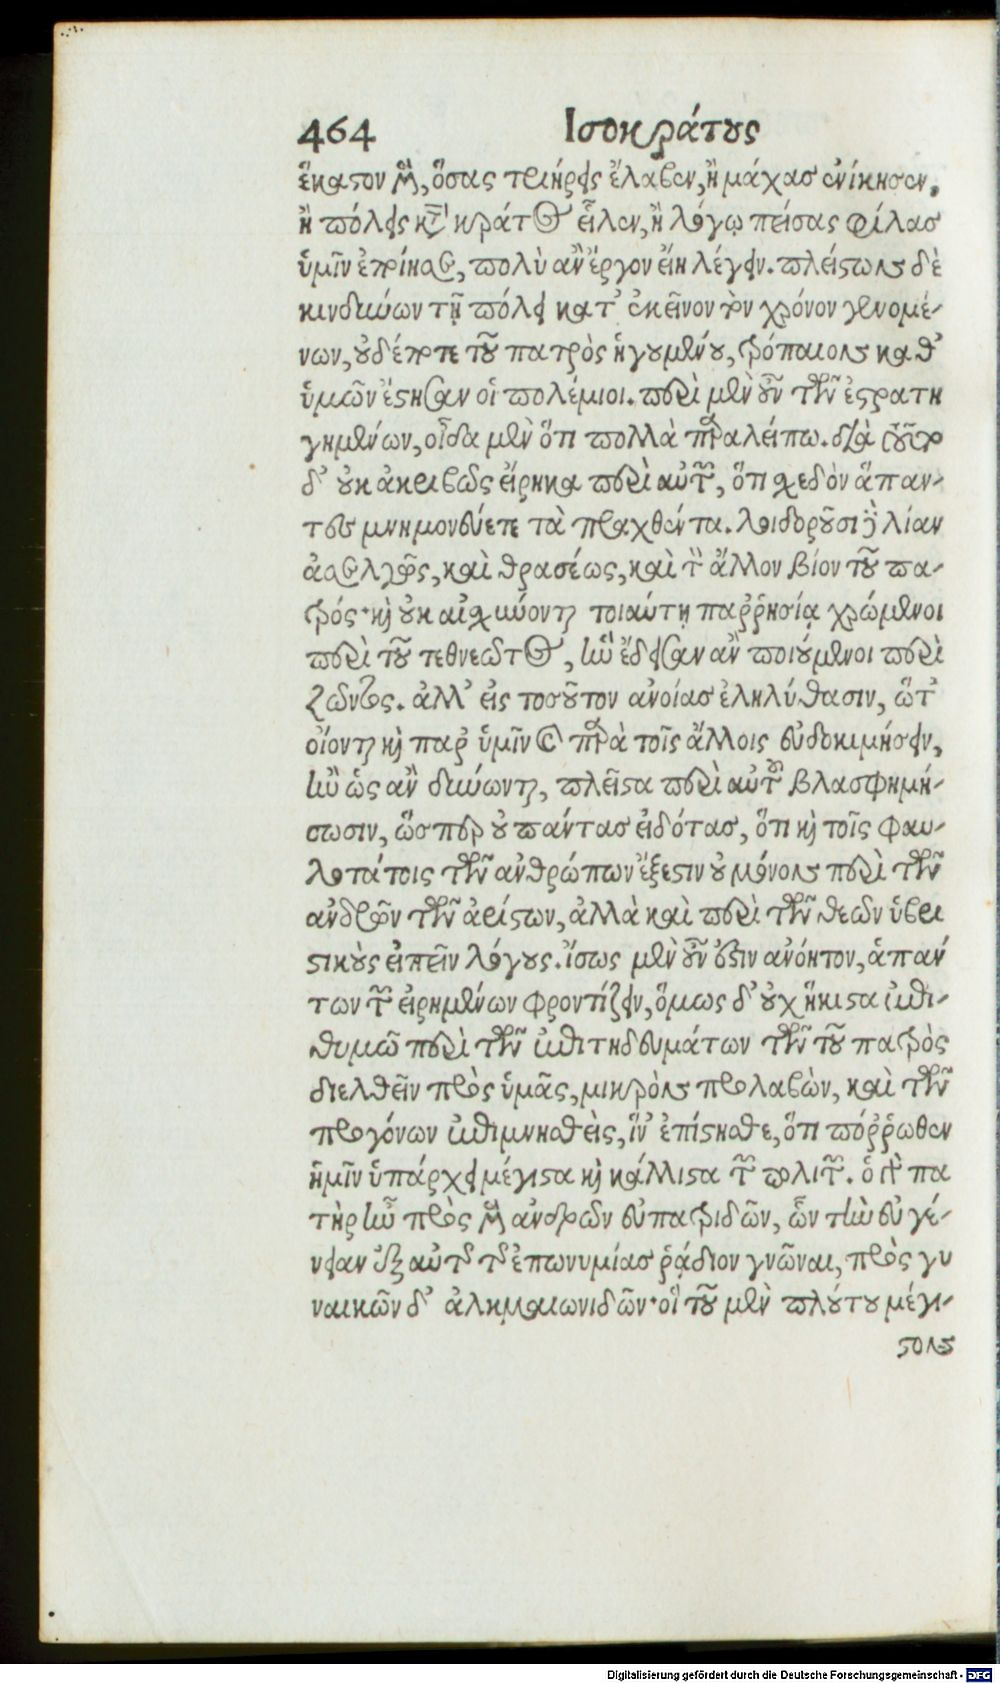 464 Ισοκράτους
ἕκαστον μὲν, ὅσας τριήρεις ἔλαβεν, ἢ μάχας ἐνίκησεν,
ἢ πόλεις κατὰ κράτος εἷλεν, ἢ λόγῳ πείσας φίλας
ὑμῖν ἐποίησε, πολὺ ἂν ἔργον εἴη λέγειν. πλείστων δὲ
κινδύνων τῇ πόλει κατ' ἐκεῖνον τὸν χρόνον γενομέ-
νων, οὐδέποτε τοῦ πατρὸς ἡγουμένου, τρόπαιον καθ'
ὑμῶν ἔστησαν οἱ πολέμιοι. περὶ μὲν οὖν τῶν ἐστρατη
γημένων, οἶδα μὲν ὅτι πολλὰ παραλείπω. διὰ τοῦτο
δ' οὐκ ἀκριβῶς εἴρηκα περὶ αὐτῶν, ὅτι σχεδὸν ἅπαν-
τες μνημονεύετε τὰ πραχθέντα. λοιδοροῦσι δὲ λίαν
ἀσελγῶς, καὶ θρασέως, καὶ τὸν ἄλλον βίον τοῦ πα-
τρός· καὶ οὐκ αἰσχύνονται τοιαύτῃ παῤῥησίᾳ χρώμενοι
περὶ τοῦ τεθνεῶτος, ἣν ἔδεισαν ἂν ποιούμενοι περὶ
ζῶντος. ἀλλ' εἰς τοσοῦτον ἀνοίας ἐληλύθασιν, ὥστ'
οἴονται καὶ παρ' ὑμῖν καὶ παρὰ τοῖς ἄλλοις εὐδοκιμήσειν,
ἢν ὡς ἂν δύνωνται, πλεῖστα περὶ αὐτοῦ βλασφημή-
σωσιν, ὥσπερ οὐ πάντας εἰδότας, ὅτι καὶ τοῖς φαυ-
λοτάτοις τῶν ἀνθρώπων ἔξεστιν οὐ μόνον περὶ τῶν
ἀνδρῶν τῶν ἀρίστων, ἀλλὰ καὶ περὶ τῶν θεῶν ὑβρι
στικοὺς εἰπεῖν λόγους. ἴσως μὲν οὖν ἐστιν ἀνόητον, ἁπάν
των τῶν εἰρημένων φροντίζειν, ὅμως δ' οὐχ ἥκιστα ἐπι-
θυμῶ περὶ τῶν ἐπιτηδευμάτων τῶν τοῦ πατρὸς
διελθεῖν πρὸς ὑμᾶς, μικρὸν προλαβὼν, καὶ τῶν
προγόνων ἐπιμνησθεὶς, ἵν' ἐπίστησθε, ὅτι πόῤῥωθεν
ἡμῖν ὑπάρχει μέγιστα καὶ κάλλιστα τῶν πολιτῶν. ὁ γὰρ πα
τὴρ ἦν πρὸς μὲν ἀνδρῶν εὐπατριδῶν, ὧν τὴν εὐγέ-
νειαν ἐξ αὐτῆς τῆς ἐπωνυμίας ῥᾴδιον γνῶναι, πρὸς γυ
ναικῶν δ' ἀλκμαιωνιδῶν· οἳ τοῦ μὲν πλούτου μέγι-
στον
Digitalisierung gefördert durch die Deutsche Forschungsgemeinschaft - DFG